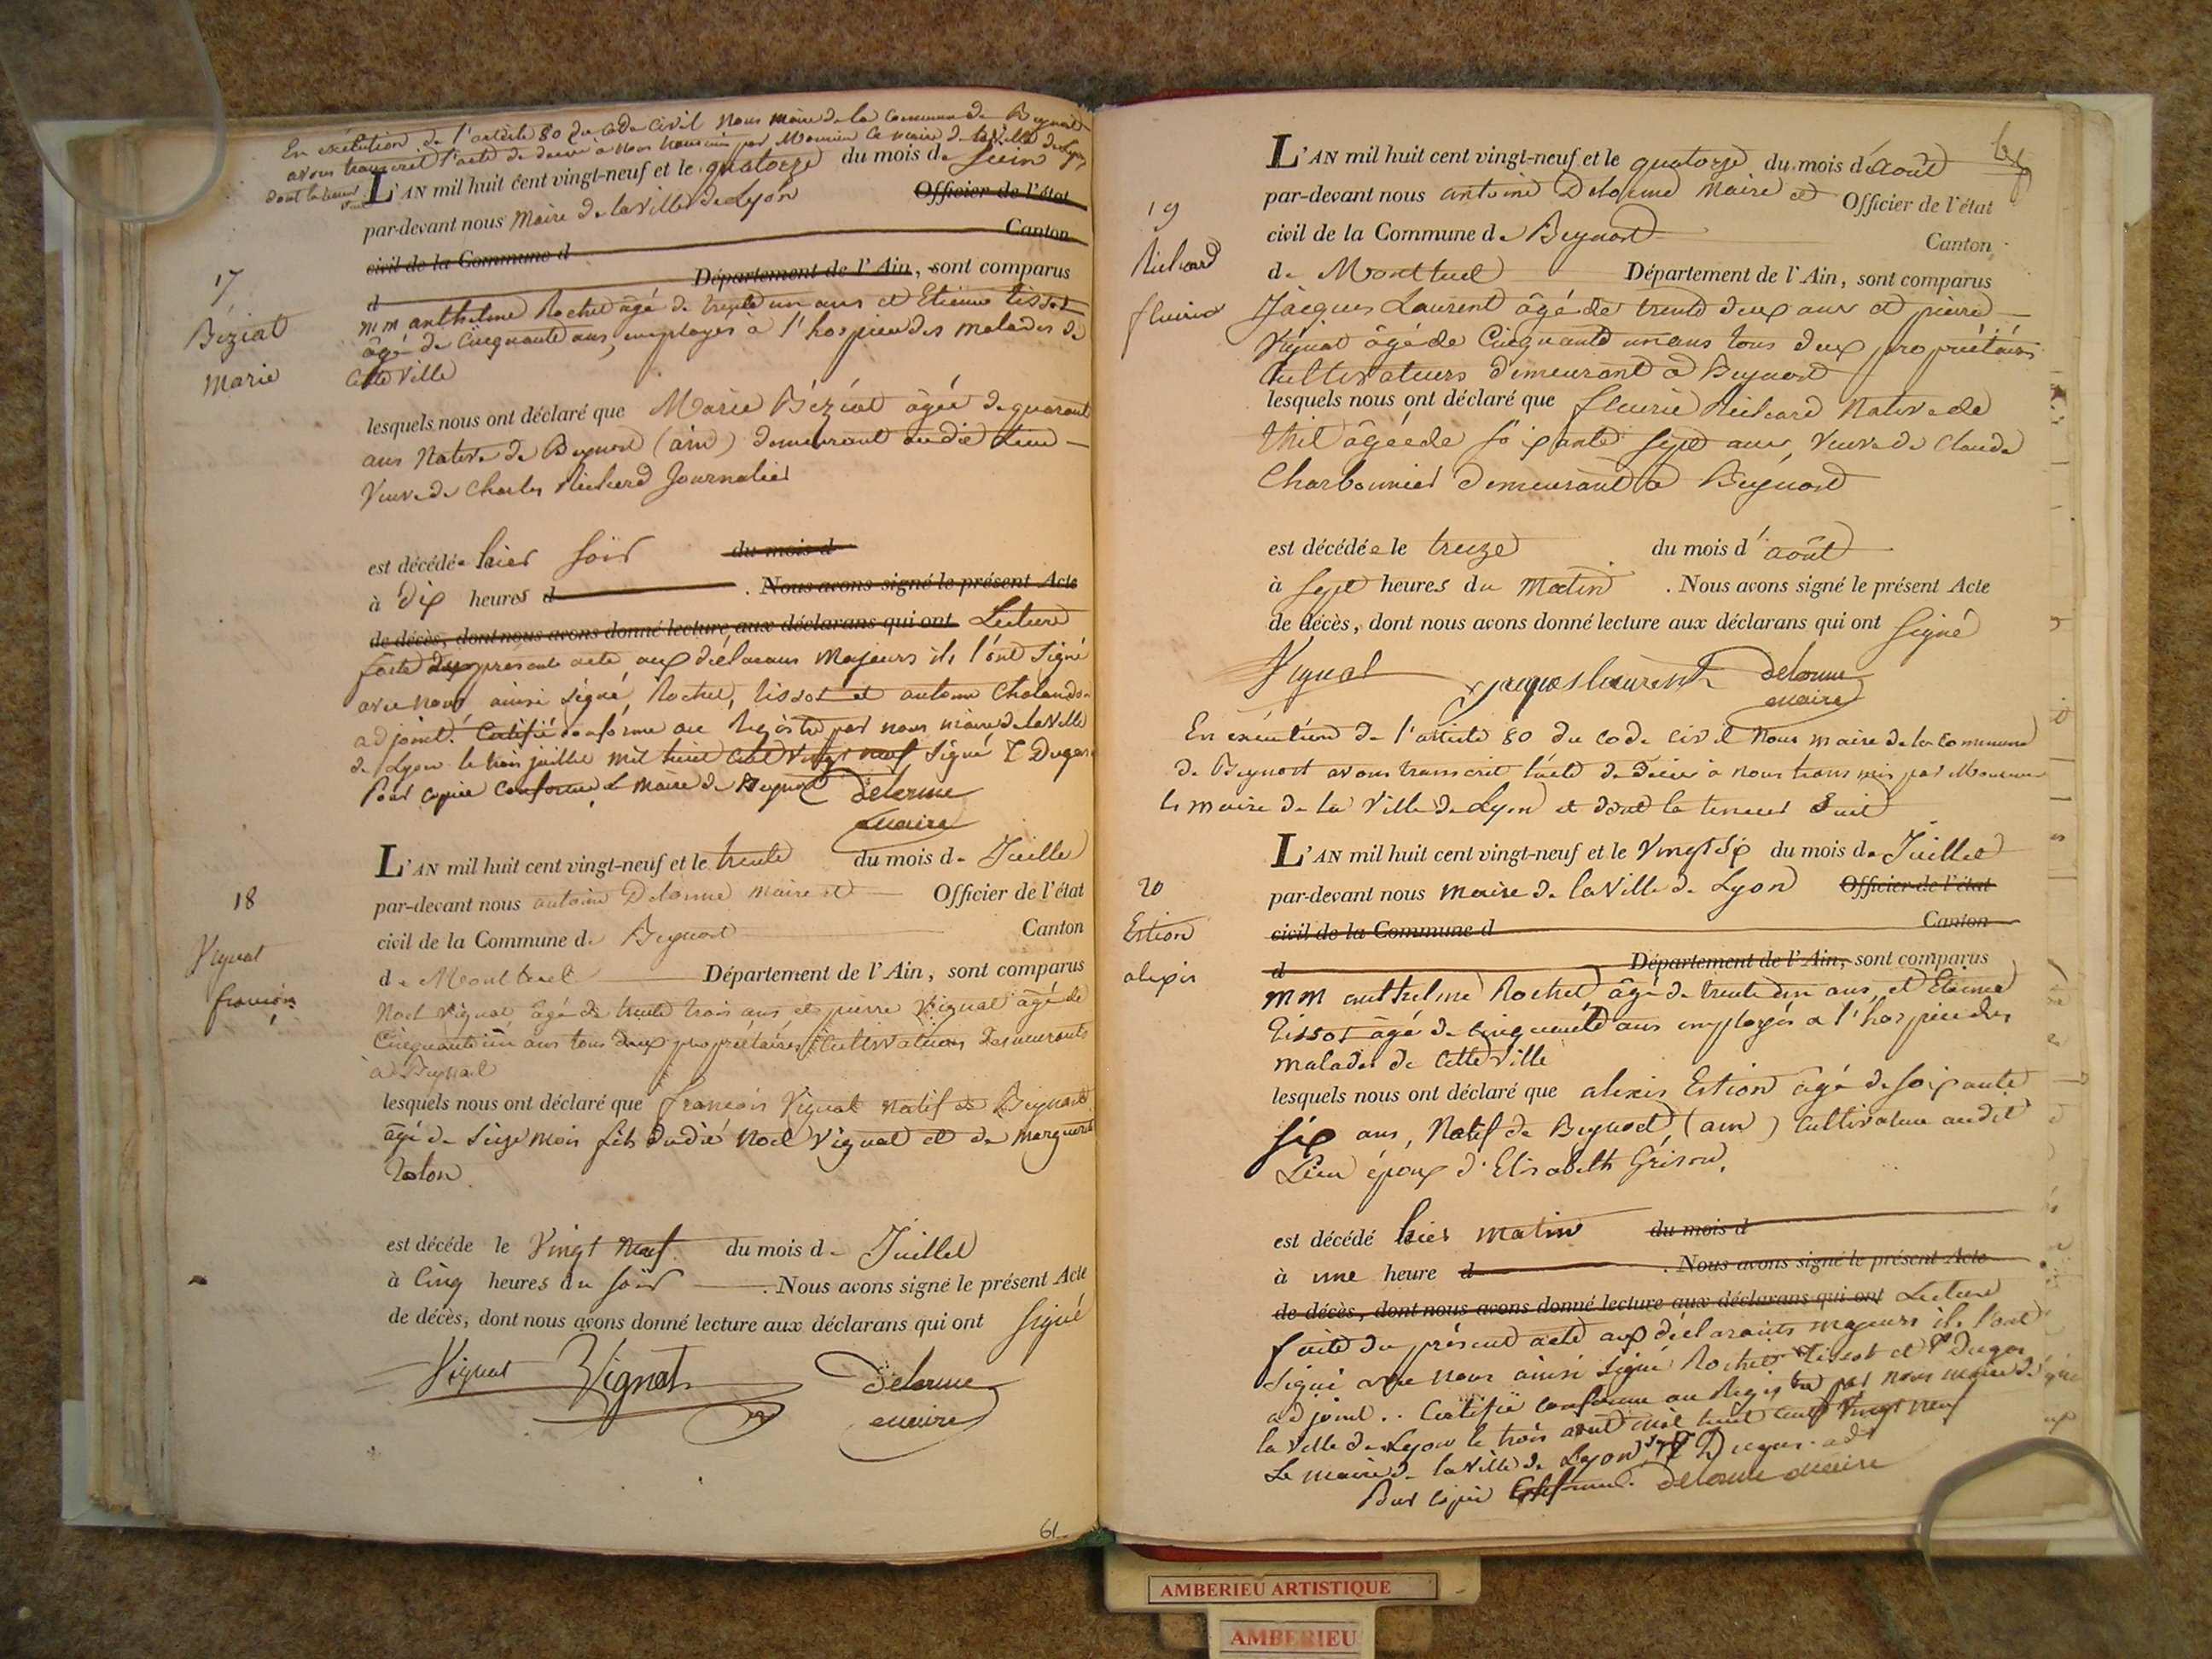 En exécution de l'article 80 du Code Civil Nous maire de la commune de Beynost
avons transcrit l'acte de décès à nous transmis par Monsieur le maire de la Ville de Lyon
dont la teneur suit
L'AN mil huit cent vingt-neuf et le quatorze du mois de Juin
par-devant nous Maire de la Ville de Lyon Officier de l'état
civil de la Commune d Canton
d Département de l'Ain, sont comparus
17
Béziat
Marie
MM anthelme Rochet âgé de trente un ans et Etienne tissot
âgé de Cinquante ans, employés à l'hospice des malades de
cette Ville
lesquels nous ont déclaré que Marie Béziat âgée de quarante
ans Native de Beynost (ain) demeurant audit Lieu
Veuve de Charles Richard Journalier
est décédée hier soir du mois d
à Dix heures d . Nous avons signé le présent Acte
de décès, dont nous avons donné lecture aux déclarans qui ont Lecture
faite du présent acte aux déclarans Majeurs ils l'ont Signé
avec nous ainsi signé, Rochet, tissot et antoine
adjoint. Certifié conforme au Registre par nous maire de la Ville
de Lyon le trois juillet mil huit cent vingt neuf Signé
Pour copie Conforme le Maire de Beynost Delorme
maire
L'AN mil huit cent vingt-neuf et le trente du mois de Juillet
par-devant nous antoine Delorme maire et Officier de l'état
civil de la Commune de Beynost Canton
de Montluel Département de l'Ain, sont comparus
18
Vignat
françois
Noel Vignat âgé de trente trois ans et pierre Vignat âgé de
Cinquante un ans tous deux propriétaires Cultivateurs Demeurants
à Beynost
lesquels nous ont déclaré que françois Vignat natif de Beynost
âgé de Seize mois fils dudit Noel Vignat et de Marguerite
est décédé le Vingt Neuf du mois de Juillet
à Cinq heures du soir . Nous avons signé le présent Acte
de décès, dont nous avons donné lecture aux déclarans qui ont Signé
Vignat Vignat Delorme
maire
61
L'AN mil huit cent vingt-neuf et le quatorze du mois d'août
par-devant nous antoine Delorme Maire et Officier de l'état
civil de la Commune de Beynost Canton
de Montluel Département de l'Ain, sont comparus
19
Richard
fleurie
Jacques Laurent âgé de trente deux ans et pierre
Vignat âgé de Cinquante un ans tous deux propriétaires
Cultivateurs demeurant à Beynost
lesquels nous ont déclaré que fleurie Richard Native de
Thil âgée de soixante sept ans, Veuve de Claude
Charbonnier demeurant à Beynost
est décédée le treize du mois d'août
à sept heures du Matin . Nous avons signé le présent Acte
de décès, dont nous avons donné lecture aux déclarans qui ont Signé
Vignat jacques laurent Delorme
maire
En exécution de l'article 80 du code civil Nous maire de la commune
de Beynost avons transcrit l'acte de décès à nous transmis par Monsieur
le maire de la Ville de Lyon et dont la teneur suit
L'AN mil huit cent vingt-neuf et le Vingt Six du mois de Juillet
par-devant nous maire de la Ville de Lyon Officier de l'état
civil de la Commune d Canton
d Département de l'Ain, sont comparus
20
Estion
alexis
MM anthelme Rochet âgé de trente un ans, et Etienne
Tissot âgé de cinquante ans employés à l'hospice des
malades de cette Ville
lesquels nous ont déclaré que alexis Estion âgé de soixante
six ans, Natif de Beynost, (ain) Cultivateur audit
Lieu époux d'Elisabeth Grison,
est décédé hier matin du mois d
à une heure d . Nous avons signé le présent Acte
de décès, dont nous avons donné lecture aux déclarans qui ont Lecture
faite du présent acte aux déclarants majeurs ils l'ont
Signé avec nous ainsi Signé Rochet Tissot et
adjoint.. Certifié conforme au Registre par nous maire de
la Ville de Lyon le trois août mil huit cent Vingt neuf
Le maire de la Ville de Lyon
Pour copie Conforme. Delorme maire
AMBERIEU ARTISTIQUE
AMBERIEU